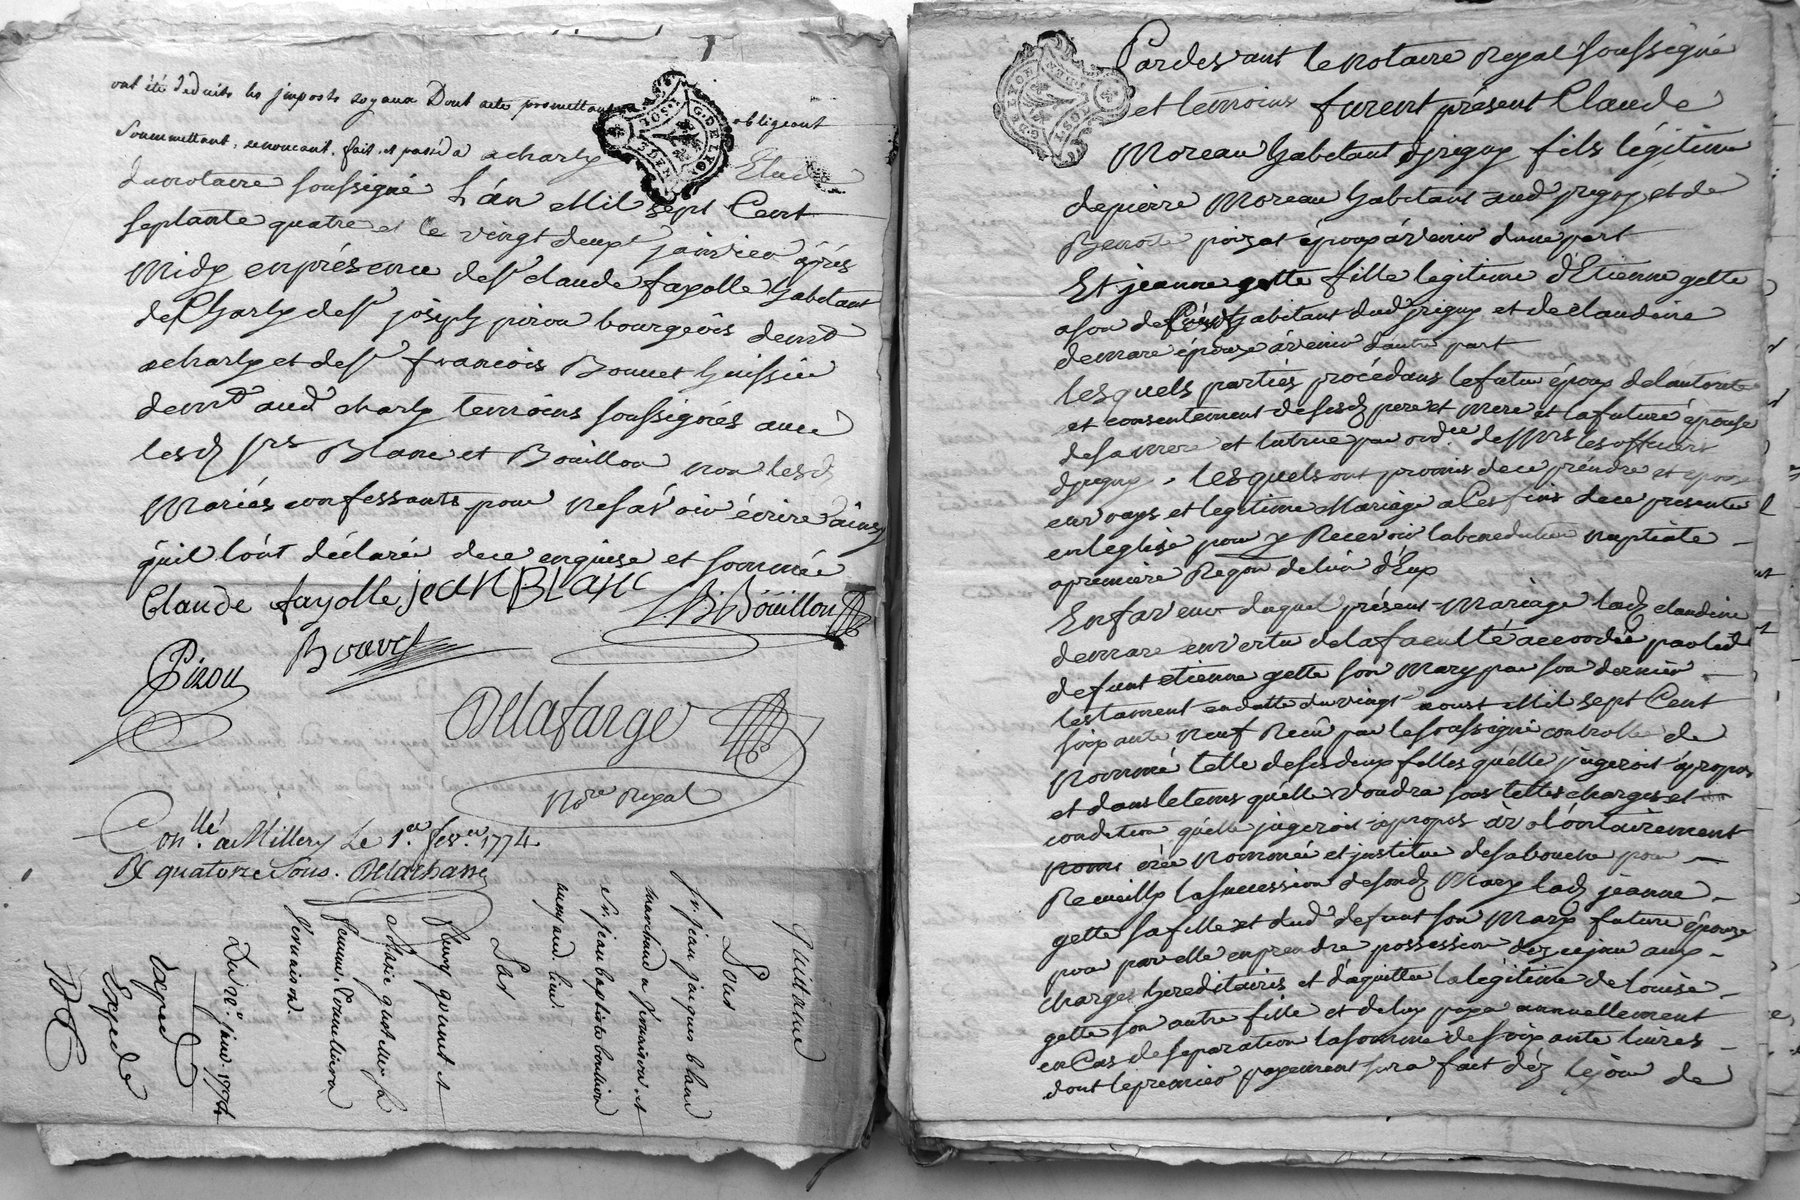 ont été deduits les jmposts royaux Dont acte promettant obligeant
Soummettant, renoncant, fait et passé a acharly Etude
du notaire soussigné L'án Mil sept Cent
septante quatre et le vingt deux janvier áprés
Midy enprésence de sr claude fayolle habitant
de Charly de sr joseph pizou bourgeois demt
acharly et de sr francois Bonnet huissier
demt aud charly temoins soussignés avec
lesd srs Blanc et Boüillon non lesd
Mariés confessants pour ne sávoir écrire ainsy
quil lont déclarée de ce enquise et sommée
Claude fayolle jean BLANC Bouillon
Pizou Bonnet
Delafarge
Nore royal
Conllé a Millery le 1er fevr 1774
R quatorze sous. Delachasse
quittance
Pour
Sr jean jacques blanc
marchand a
et Sr jean baptiste bouillon
Par
fleury et
Marie
femme
Du 22e janv. 1774
Expedié
Expedié
G.DE LYON
Pardevant le notaire Royal soussigné
et temoins furent présent Claude
Moreau habitant djrigny fils légitime
de pierre Moreau habitant aud jrigny et de
Benoite époux ávenir dune part
Et jeanne gette fille legitime d'Etienne gette
a son decés habitant dud jrigny et de claudine
demare épouze ávenir d'autre part
lesquels parties procédans le futur époux de lautorité
et consentement de sesd pere et mere et la future épouse
de sa mere et tutrice par ordce de Mrs les officiers
djrigny, lesquels ont promis de ce préndre et epouser
en vrays et legitime Mariage a Ces fins de ce presenter
en leglise pour y Recevoir la benediction nuptiale
a premiere Requon de lun d'Eux
En faveur duquel présent Mariage lad claudine
demare en vertu de la faculté accordée par led
defunt etienne gette son Mary par son dernier
testament en datte du vingt aoust Mil sept Cent
soixante neuf Reçû par le soussigné controllé de
Nommé telle de ses deux filles qu'elle jugeroit ápropos
et dans le tems qu'elle voudra sous telles charges et
condition qu'elle jugeroit ápropos à volontairement
nommé et jnstitué de sa bouche pour
Recueillir la succession de sond Mary lad jeanne
gette sa fille et dud defunt son Mary future épouse
pour par elle en prendre possession dez ce jour aux
charges hereditaires et d'aquitter la légitime de loüise
gette son autre fille et de luy payer annuellement
en Cas de separation la somme de soixante livres
dont le premier payement sera fait déz le jour de